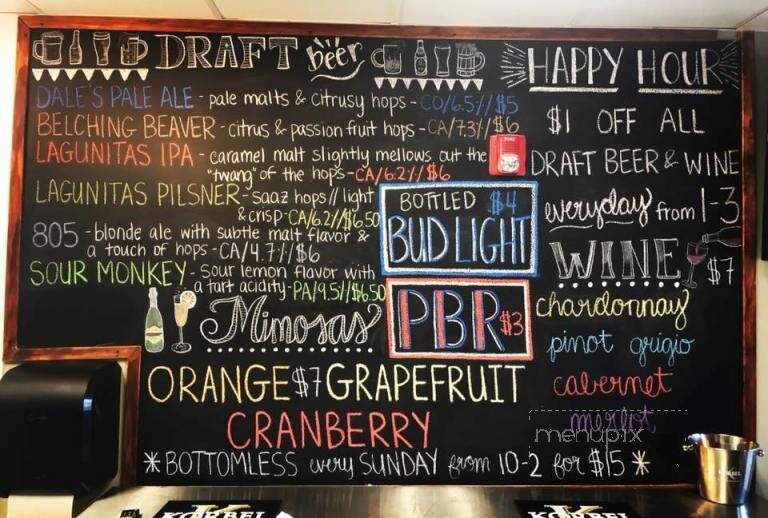 DRAFT beer
DALE'S PALE ALE - pale malts & citrusy hops - CO/6.5%//$5
BELCHING BEAVER - citrus & passion fruit hops - CA/7.3%/$6
LAGUNITAS IPA - caramel malt slightly mellows out the
"twang" of the hops - CA/6.2%//$6
LAGUNITAS PILSNER - saaz hops // light
& crisp - CA/6.2%//$6.50
805 - blonde ale with subtle malt flavor &
a touch of hops - CA/4.7%/$6
SOUR MONKEY - sour lemon flavor with
a tart acidity - PA/9.5%//$6.50
BOTTLED $4
BUD LIGHT
PBR $3
HAPPY HOUR
$1 OFF ALL
DRAFT BEER & WINE
everyday from 1-3
WINE $7
chardonnay
pinot grigio
cabernet
merlot
Mimosas
ORANGE $7 GRAPEFRUIT
CRANBERRY
*BOTTOMLESS every SUNDAY from 10-2 for $15*
menupix
KORBEL
KORBEL
KORBEL